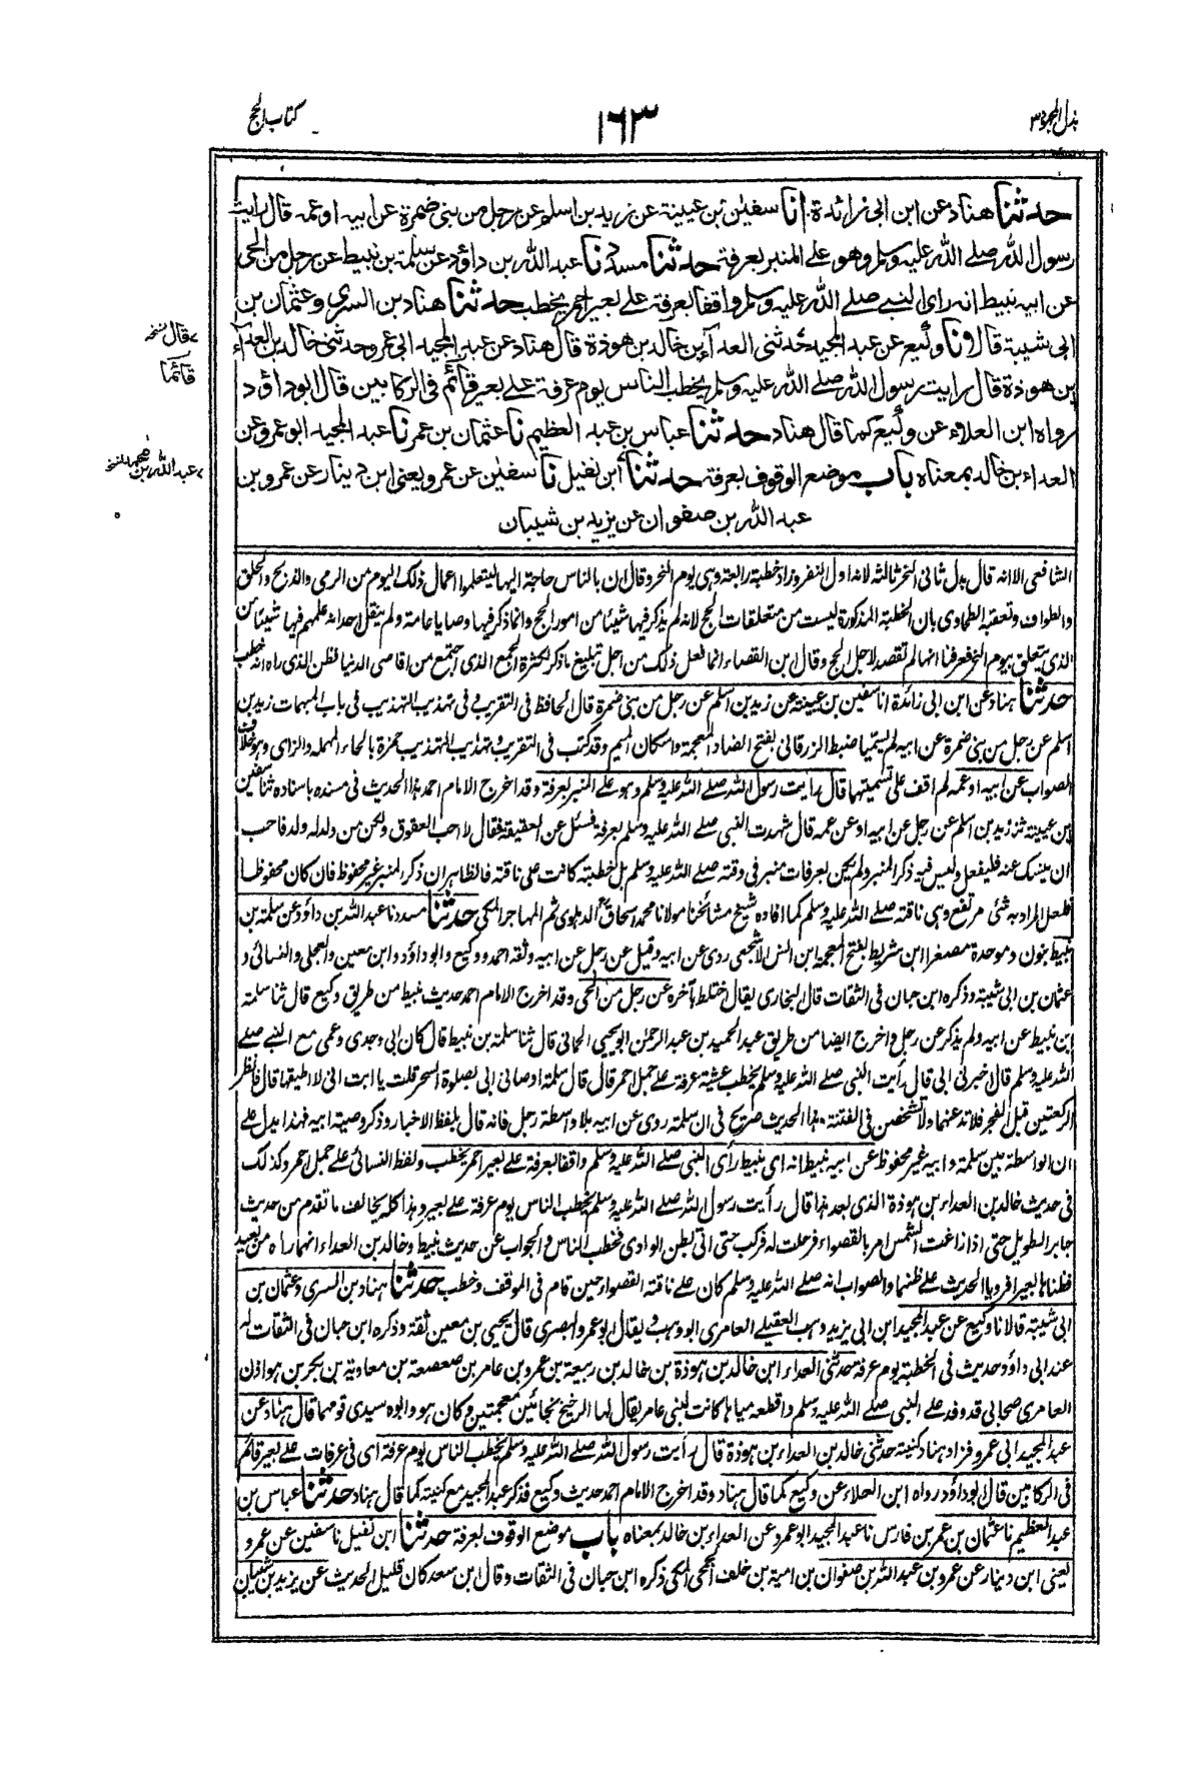 بذل المجهود ٣
١٦٣
كتاب الحج
حدثنا هناد عن ابن ابى زائدة انا سفين بن عيينة عن زيد بن اسلم عن رجل من بنى ضمرة عن ابيه او عمه قال رايت
رسول الله صلى الله عليه وسلم وهو على المنبر بعرفة حدثنا مسدد نا عبد الله بن داؤد عن سلمة بن نبيط عن رجل من الحى
عن ابيه نبيط انه راى النبى صلى الله عليه وسلم واقفا بعرفة على بعير احمر يخطب حدثنا هناد بن السرى وعثمان بن
ابى شيبة قالا نا وكيع عن عبد المجيد حدثنى العداء بن خالد بن هوذة قال هناد عن عبد المجيد ابى عمرو حدثنى خالد بن العداء
بن هوذة قال رايت رسول الله صلى الله عليه وسلم يخطب الناس يوم عرفة على بعير قائم فى الركابين قال ابو داؤد
رواه ابن العلاء عن وكيع كما قال هناد حدثنا عباس بن عبد العظيم نا عثمان بن عمر نا عبد المجيد ابو عمرو عن
العداء بن خالد بمعناه باب موضع الوقوف بعرفة حدثنا ابن نفيل نا سفين عن عمرو يعنى ابن دينار عن عمرو بن
عبد الله بن صفوان عن يزيد بن شيبان
قال نسخه
قائما
عبد الله بن محمد نسخ
الشافعى الا انه قال بدل ثانى النحر ثالثه لانه اول النفر وزاد خطبة رابعة وهى يوم النحر وقال ان بالناس حاجة اليها ليتعلموا اعمال ذلك اليوم من الرمى والذبح والحلق
والطواف وتعقبه الطحاوى بان الخطبة المذكورة ليست من متعلقات الحج لانه لم يذكر فيها شيئا من امور الحج وانما ذكر فيها وصايا عامة ولم ينقل احد انه علمهم فيها شيئا من
الذى يتعلق بيوم النحر فعرفنا انها لم تقصد لاجل الحج وقال ابن القصار انما فعل ذلك من اجل تبليغ ما ذكر لكثرة الجمع الذى اجتمع من اقاصى الدنيا فظن الذى راه انه خطب
حدثنا هناد عن ابن ابى زائدة انا سفين بن عيينة عن زيد بن اسلم عن رجل من بنى ضمرة قال الحافظ فى التقريب و فى تهذيب التهذيب فى باب المبهمات زيد بن
اسلم عن رجل من بنى ضمرة عن ابيه لم يسميا ضبط الزرقانى بفتح الضاد المعجمة واسكان الميم وقد كتب فى التقريب وتهذيب التهذيب حمزة بالحاء المهملة والزاى وهو خلاف
الصواب عن ابيه او عمه لم اقف على تسميتهما قال رايت رسول الله صلى الله عليه وسلم وهو على المنبر بعرفة وقد اخرج الامام احمد هذا الحديث فى مسنده باسناده ثنا سفين
بن عيينة ثنا زيد بن اسلم عن رجل عن ابيه او عن عمه قال شهدت النبى صلى الله عليه وسلم بعرفة فسئل عن العقيقة فقال لا احب العقوق ولكن من ولد له ولد فاحب
ان ينسك عنه فليفعل وليس فيه ذكر المنبر ولم يكن بعرفات منبر فى وقته صلى الله عليه وسلم بل خطبته كانت على ناقته فالظاهر ان ذكر المنبر غير محفوظ فان كان محفوظا
فلعل المراد به شئ مرتفع وهى ناقته صلى الله عليه وسلم كما افاده شيخ مشائخنا مولانا محمد اسحاق الدهلوى ثم المهاجر المكى حدثنا مسدد نا عبد الله بن داؤد عن سلمة بن
نبيط بنون وموحدة مصغرا ابن شريط بفتح المعجمة ابن انس الاشجعى روى عن ابيه وقيل عن رجل عن ابيه وثقه احمد ووكيع وابو داؤد وابن معين والعجلى والنسائى و
عثمان بن ابى شيبة وذكره ابن حبان فى الثقات قال البخارى يقال اختلط بآخره عن رجل من الحى وقد اخرج الامام احمد حديث نبيط من طريق وكيع قال ثنا سلمة
ابن نبيط عن ابيه ولم يذكر عن رجل واخرج ايضا من طريق عبد الحميد بن عبد الرحمن ابو يحيى الحمانى قال ثنا سلمة بن نبيط قال كان ابى وجدى وعمى مع النبى صلى
الله عليه وسلم قال اخبرنى ابى قال رأيت النبى صلى الله عليه وسلم يخطب عشية عرفة على جمل احمر قال قال سلمة اوصانى ابى بصلوة السحر قلت يا ابت انى لا اطيقها قال فانظر
الركعتين قبل الفجر فلا تدعنهما ولا تشخصن فى الفتنة هذا الحديث صريح فى ان سلمة روى عن ابيه بلا واسطة رجل فانه قال بلفظ الاخبار وذكر وصية ابيه فهذا يدل على
ان الواسطة بين سلمة وابيه غير محفوظ عن ابيه نبيط انه اى نبيط رأى النبى صلى الله عليه وسلم واقفا بعرفة على بعير احمر يخطب ولفظ النسائى على جمل احمر وكذلك
فى حديث خالد بن العداء بن هوذة الذى بعد هذا قال رأيت رسول الله صلى الله عليه وسلم يخطب الناس يوم عرفة على بعير وهذا كله يخالف ما تقدم من حديث
جابر الطويل حتى اذا زاغت الشمس امر بالقصواء فرحلت له فركب حتى اتى بطن الوادى فخطب الناس والجواب عن حديث نبيط وخالد بن العداء انهما راه من بعيد
فظناها بعيرا فرويا الحديث على ظنهما والصواب انه صلى الله عليه وسلم كان على ناقته القصواء حين قام فى الموقف وخطب حدثنا هناد بن السرى وعثمان بن
ابى شيبة قالا نا وكيع عن عبد المجيد ابن ابى يزيد وهب العقيلى العامرى ابو وهب ويقال ابو عمرو البصرى قال يحيى بن معين ثقة وذكره ابن حبان فى الثقات له
عند ابى داؤد حديث فى الخطبة يوم عرفة حدثنى العداء ابن خالد بن هوذة بن خالد بن ربيعة بن عمرو بن عامر بن صعصعة بن معاوية بن بكر بن هوازن
العامرى صحابى قد وفد على النبى صلى الله عليه وسلم واقطعه مياها كانت لبنى عامر يقال لها الرخيخ بخائين معجمتين وكان هو وابوه سيدى قومهما قال هناد عن
عبد المجيد ابى عمرو فزاد هناد كنيته حدثنى خالد بن العداء بن هوذة قال رأيت رسول الله صلى الله عليه وسلم يخطب الناس يوم عرفة اى فى عرفات على بعير قائم
فى الركابين قال ابو داؤد رواه ابن العلاء عن وكيع كما قال هناد وقد اخرج الامام احمد حديث وكيع فذكر عبد المجيد مع كنيته كما قال هناد حدثنا عباس بن
عبد العظيم نا عثمان بن عمر بن فارس نا عبد المجيد ابو عمرو عن العداء بن خالد بمعناه باب موضع الوقوف بعرفة حدثنا ابن نفيل نا سفين عن عمرو
يعنى ابن دينار عن عمرو بن عبد الله بن صفوان بن امية بن خلف الجمحى المكى ذكره ابن حبان فى الثقات وقال ابن سعد كان قليل الحديث عن يزيد بن شيبان